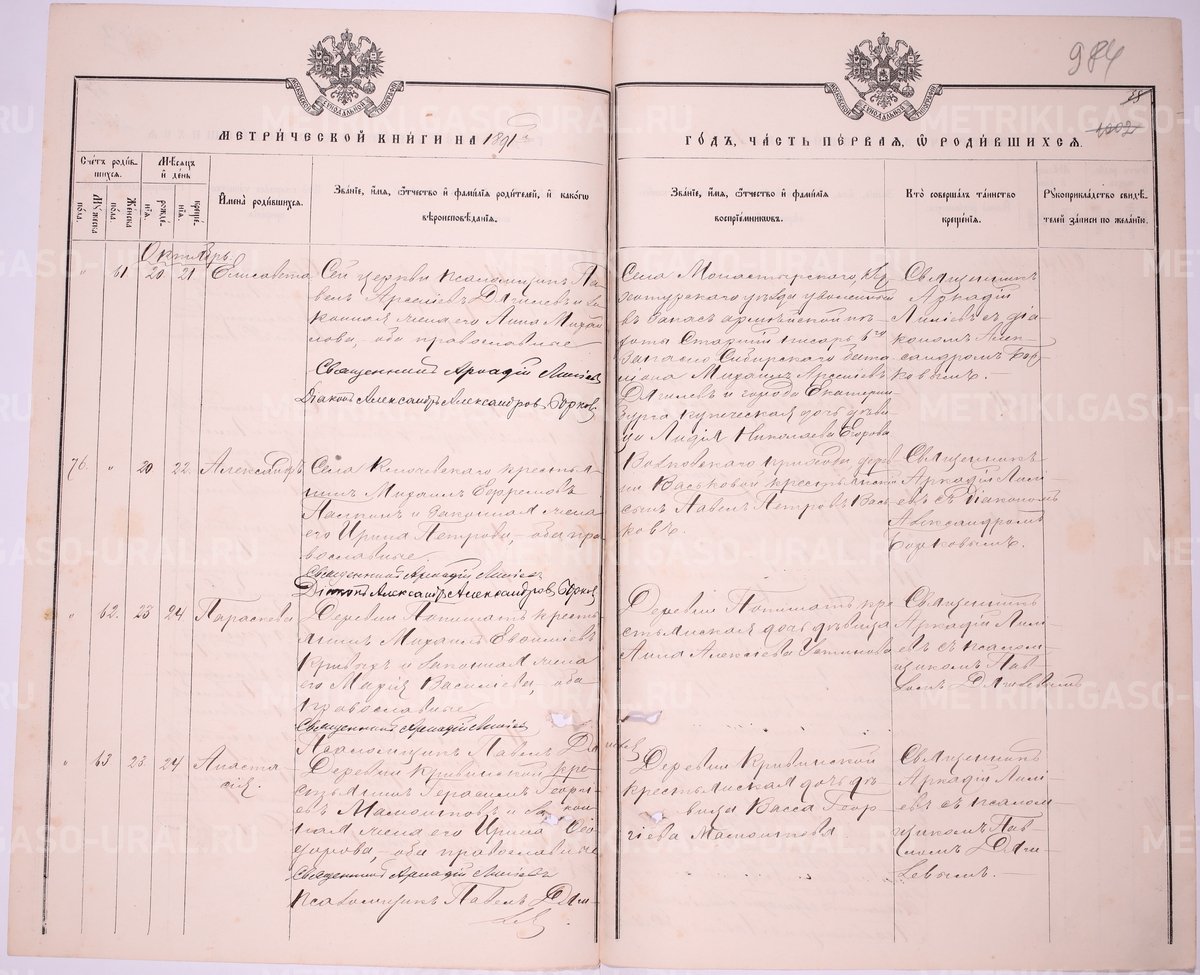 984
28
1002
МЕТРИЧЕСКОЙ КНИГИ НА 1891 й
ГОДЪ, ЧАСТЬ ПЕРВАЯ, Ѡ РОДИВШИХСЯ.
Счетъ родившихся.
Мужеска пола.
Женска пола.
Мѣсяцъ и день
рожденія.
крещенія.
Имена родившихся.
Званіе, имя, ѿчество и фамилія родителей, и какогѡ
вѣроисповѣданія.
Званіе, имя, ѿчество и фамилія
воспріемниковъ.
Кто совершалъ таинство
крещенія.
Рукоприкладство свидѣтелей записи по желанію.
Октябрь
" 61 20 21 Елисавета
Сей церкви псаломщикъ Па-
велъ Арсеніевъ Дягилевъ и за-
конная жена его Анна Михай-
лова, оба православные
Священникъ Аркадій
Діаконъ Александръ Александров Борков
Села Монастырскаго, Вер-
хотурскаго уѣзда уволенный
въ запасъ армейской пѣ-
хоты Старшій писарь 6го
Западно Сибирскаго бата-
ліона Михаилъ Арсеніевъ
Дягилевъ и города Екатерин-
бурга купеческая дочь дѣви-
ца Лидія Николаева
Священникъ
Аркадій
съ діа-
кономъ Алек-
сандромъ Бор-
ковымъ.
76. " 20 22 Александръ
Села Ключевскаго крестья-
нинъ Михаилъ Ефремовъ
и законная жена
его Ирина Петрова, оба пра-
вославные
Священникъ Аркадій
Діаконъ Александръ Александров Борков
прихода дерев-
ни Васьковой крестьянскій
сынъ Павелъ Петровъ Вась-
ковъ.
Священникъ
Аркадій
съ діакономъ
Александромъ
Борковымъ.
" 62. 23 24 Параскева
Деревни крестья-
нинъ Михаилъ
Кривыхъ и законная жена
его Марія Васильева, оба
православные
Священникъ Аркадій
Псаломщикъ Павелъ Дягилевъ
Деревни кре-
стьянская дочь дѣвица
Анна Алексѣева Устинова
Священникъ
Аркадій
съ псалом-
щикомъ Пав-
ломъ Дягилевымъ
" 63 23 24 Анаста-
сія.
Деревни Кривинской кре-
стьянинъ Герасимъ Георгі-
евъ Мамонтовъ и закон-
ная жена его Ирина Ѳео-
дорова, оба православные
Священникъ Аркадій
Псаломщикъ Павелъ Дяги-
левъ
Деревни Кривинской
крестьянская дочь дѣ-
вица Васса Геор-
гіева Мамонтова.
Священникъ
Аркадій
съ псалом-
щикомъ Пав-
ломъ Дяги-
левымъ.
METRIKI.GASO-URAL.RU